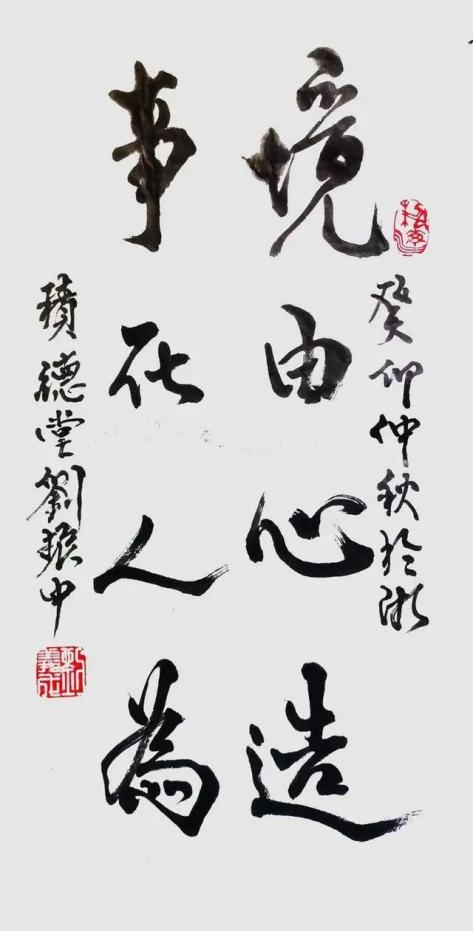 癸卯仲秋於
境由心造
事在人為
積德堂劉振中